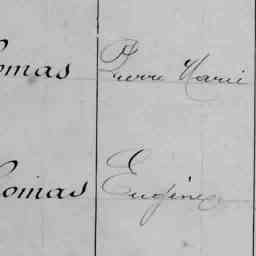 omas Pierre Marie
homas Eugène